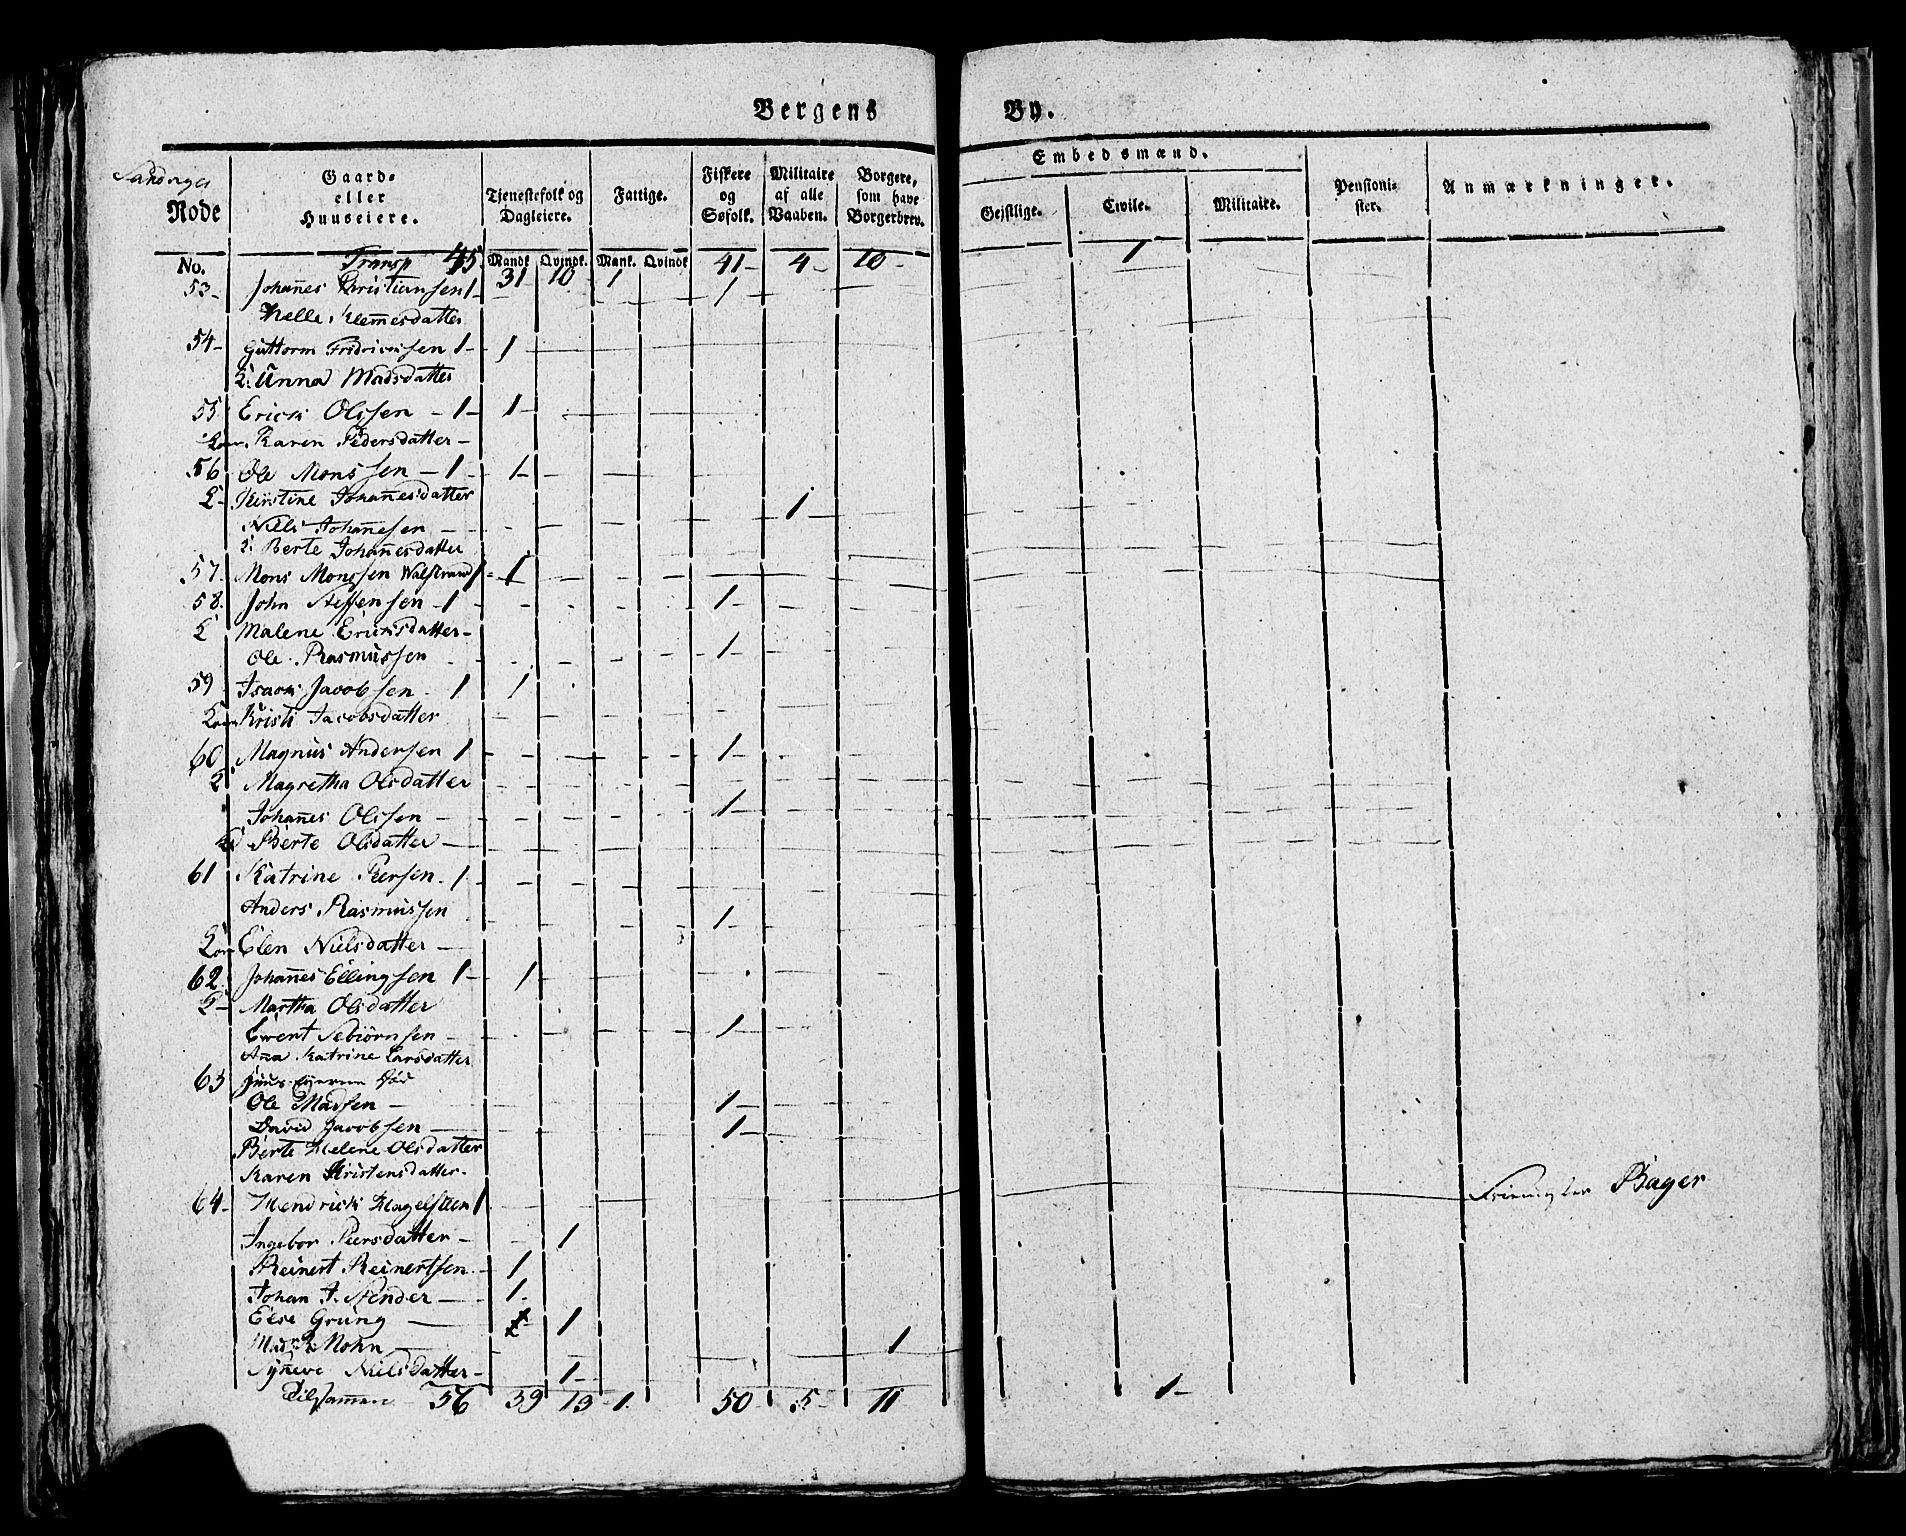 Bergens By.
Rode
Gaard- eller Huuseiere.
Tjenestefolk og Dagleiere.
Fattige.
Fiskere og Søfolk.
Militaire af alle Vaaben.
Borgere, som have Borgerbrev.
Embedsmænd.
Gejstlige.
Civile.
Militaire.
Pensionister.
Anmærkninger.
No. Mandk Qvindk. Mank. Qvindk
Transp 45 31 10 1 41 4 10 1
53 Johannes Kristiansen 1 1
Helle Klemesdatter
54 Guttorm Fredriksen 1 1
Anna Madsdatter
55 Erick Olssen 1 1
Karen Pedersdatter
56 Ole Monssen 1 1
Kirstine Johannesdatter
Nills Johannesen 1
Berte Johannesdatter
57 Mons Monssen Walstrand 1 1
58 John Steffensen 1 1
Malene Ericksdatter
Ole Rasmussen 1
59 Isack Jacobsen 1 1
Kristi Jacobsdatter
60 Magnus Andersen 1 1
Magretha Olsdatter
Johannes Olssen 1
Berte Olsdatter
61 Katrine Peersen 1
Anders Rasmussen 1
Elen Nielsdatter
62 Johannes Ellingsen 1 1
Martha Olsdatter
Ewent Sebiørnsen 1
Ana Katrine Larsdatter
63 Huus Eyeren Død
Ole Madsen 1
David Jacobsen 1
Berte Helene Olsdatter
Karen Kristensdatter
64 Hendrick Hagelsteen 1 Bager
Ingebor Peersdatter 1
Reinert Reinertsen 1
Johan J. Stender 1
Else Grung 1
Mohn 1
Synneve Nielsdatter 1
Tilsammen 56 39 13 1 50 5 11 1